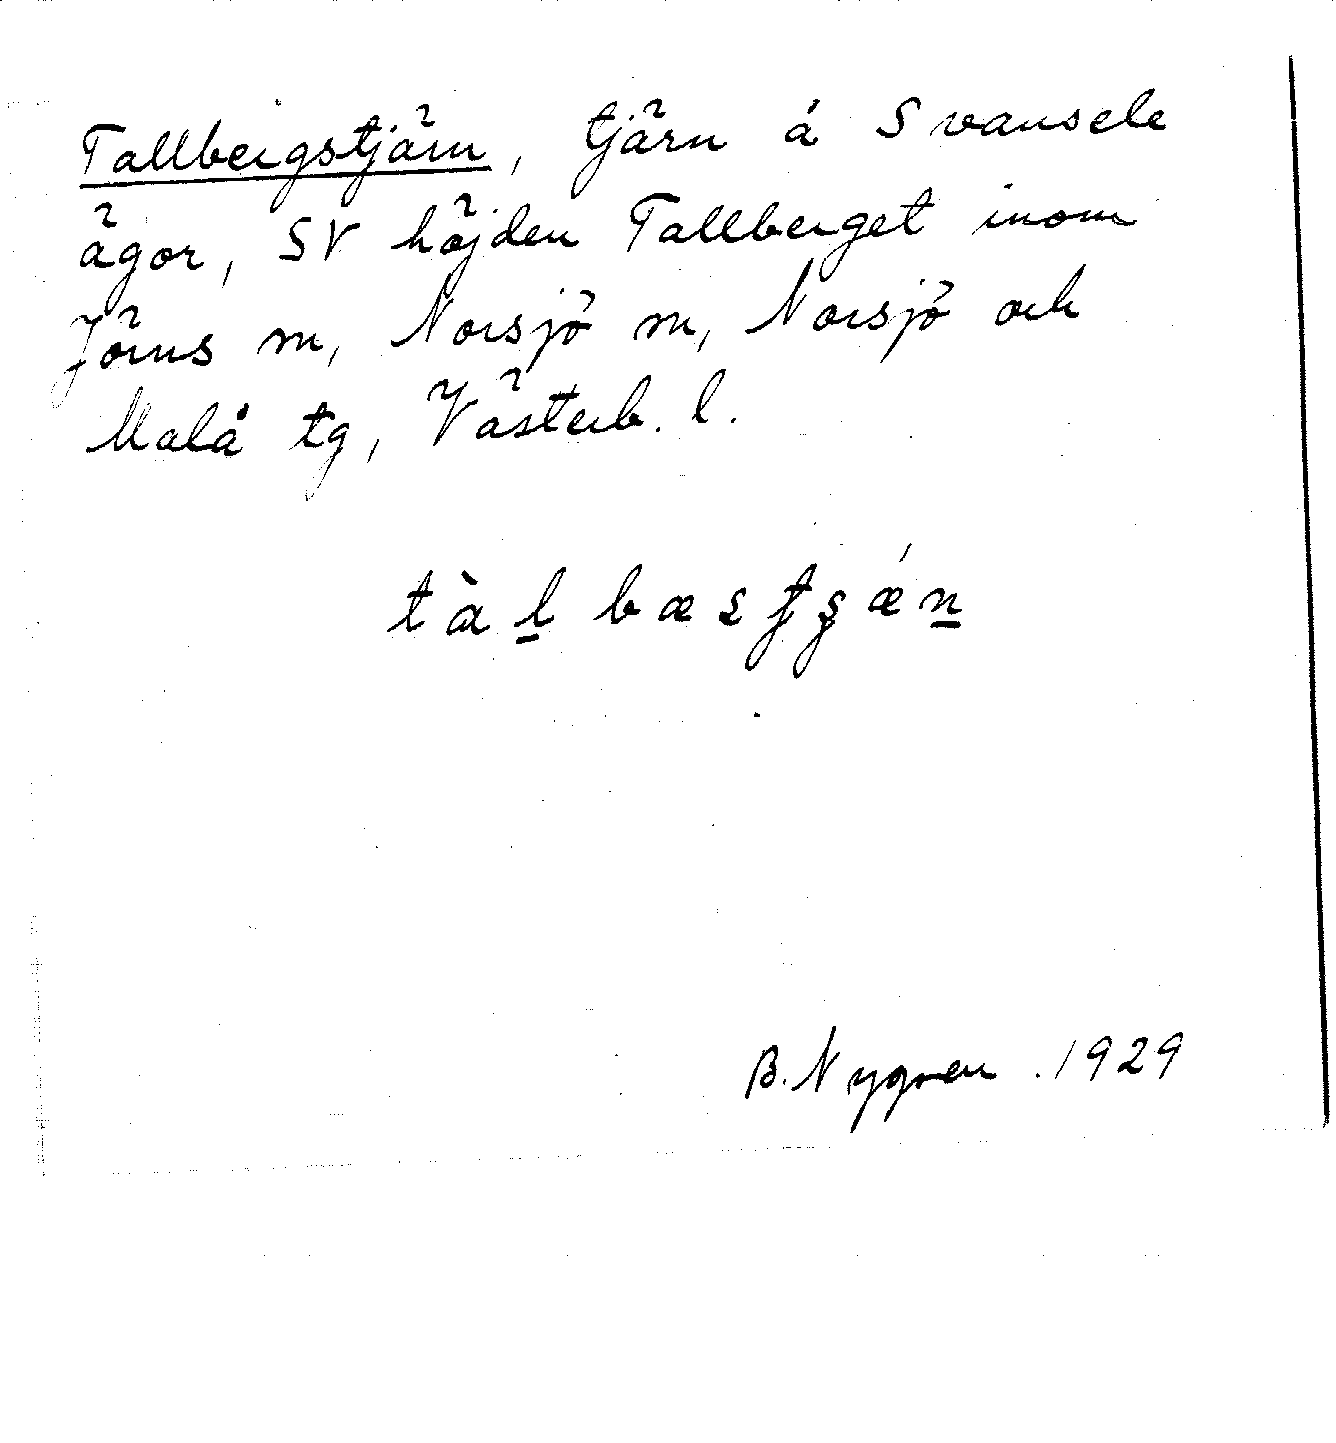 Tallbergstjärn, tjärn å Svansele
ägor, SV höjden Tallberget inom
Jörns sn, Norsjö sn, Norsjö och
Malå tg, Västerb. l.
tàl̲bæsʈʂǽn̲
B. Nygren. 1929